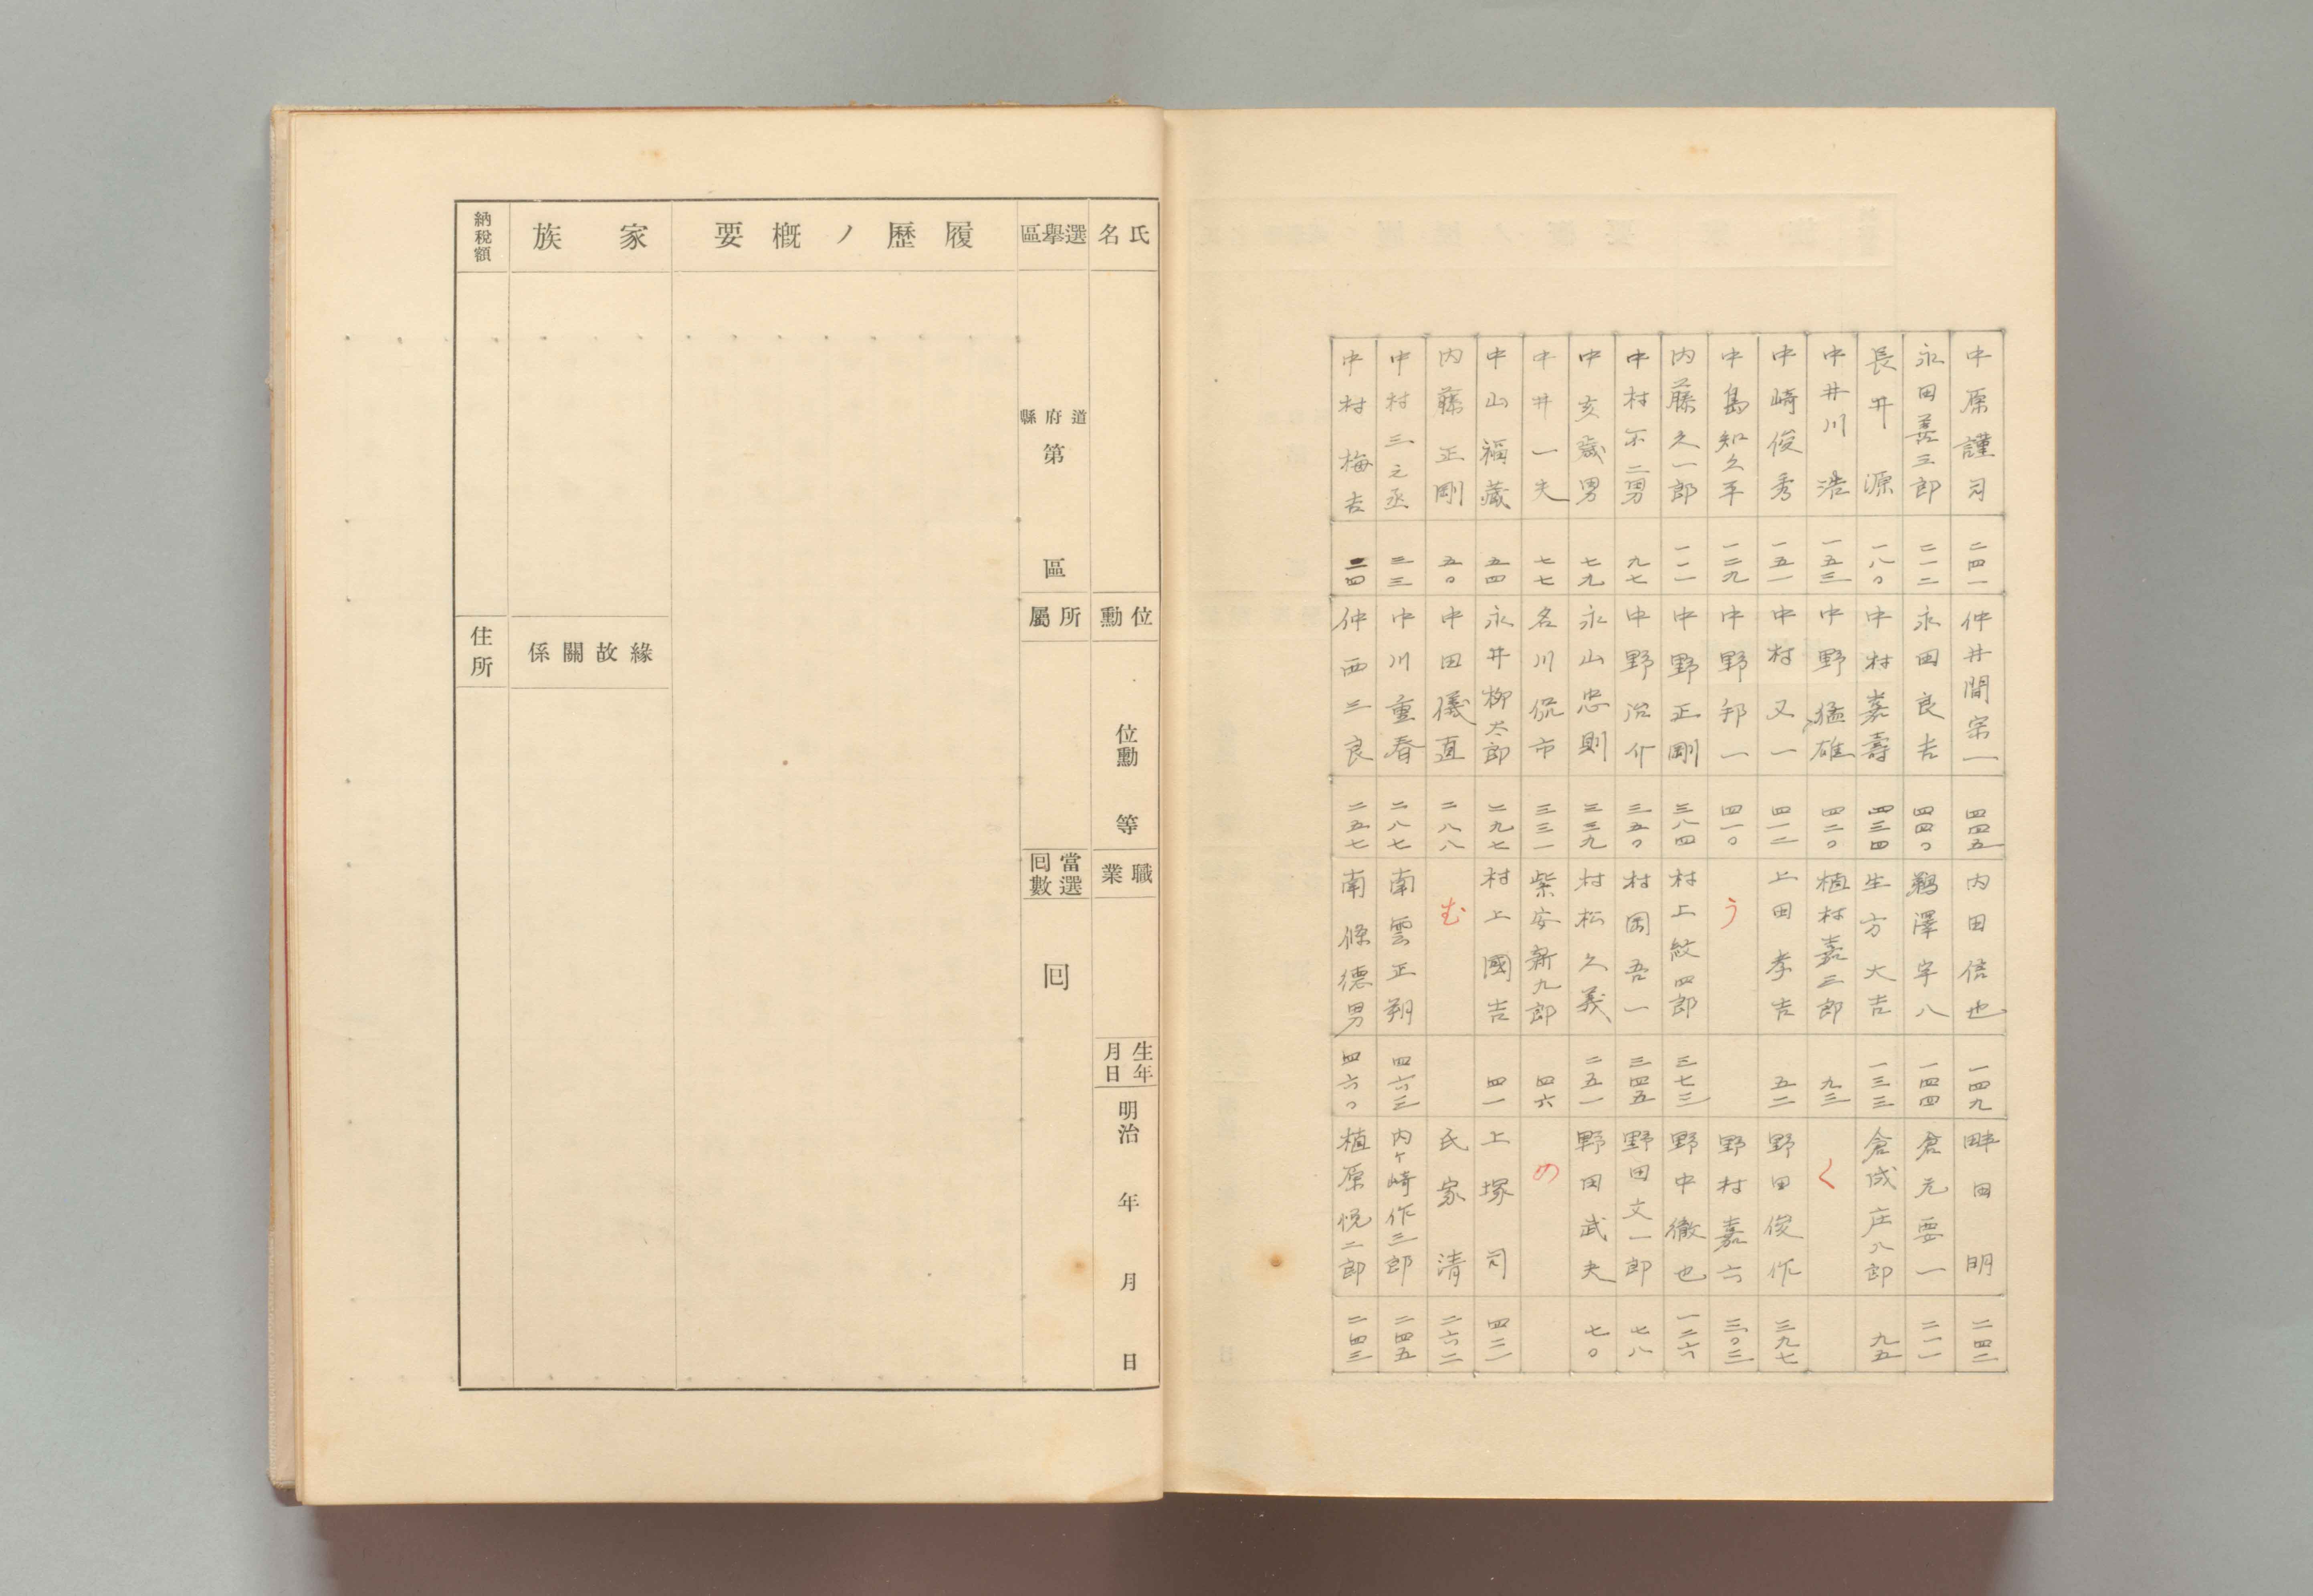 中原謹司 二四一 仲井間宗一 四四五 内田信也 一四九 畔田明 二四二
永田善三郎 二一二 永田良吉 四四〇 鵜澤宇八 一四四 倉元要一 二一一
長井源 一八〇 中村嘉壽 四三四 生方大吉 一三三 倉成庄八郎 九五
中井川浩 一五三 中野猛雄 四二〇 植村嘉三郎 九三 く
中崎俊秀 一五一 中村又一 四一二 上田孝吉 五二 野田俊作 三九七
中島知久平 一二九 中野邦一 四一〇 う 野村嘉六 三〇三
内藤久一郎 一一一 中野正剛 三八四 村上紋四郎 三七三 野中徹也 一二六
中村不二男 九七 中野治介 三五〇 村岡吾一 三四五 野田文一郎 七八
中亥歳男 七九 永山忠則 三三九 村松久義 二五一 野田武夫 七〇
中井一夫 七七 名川侃市 三三一 紫安新九郎 四六 の
中山福藏 五四 永井柳太郎 二九七 村上國吉 四一 上塚司 四三二
内藤正剛 五〇 中田儀直 二八八 む 氏家清 二六二
中村三之丞 三三 中川重春 二八七 南雲正朔 四六三 内ヶ崎作三郎 二四五
中村梅吉 二四 仲西三良 二五七 南條德男 四六〇 植原悦二郎 二四三
氏名
位勳
位勳 等
職業
生年月日
明治 年 月 日
選擧區
道府縣
第 區
所屬
當選囘數
囘
履歷ノ槪要
家族
緣故關係
納稅額
住所